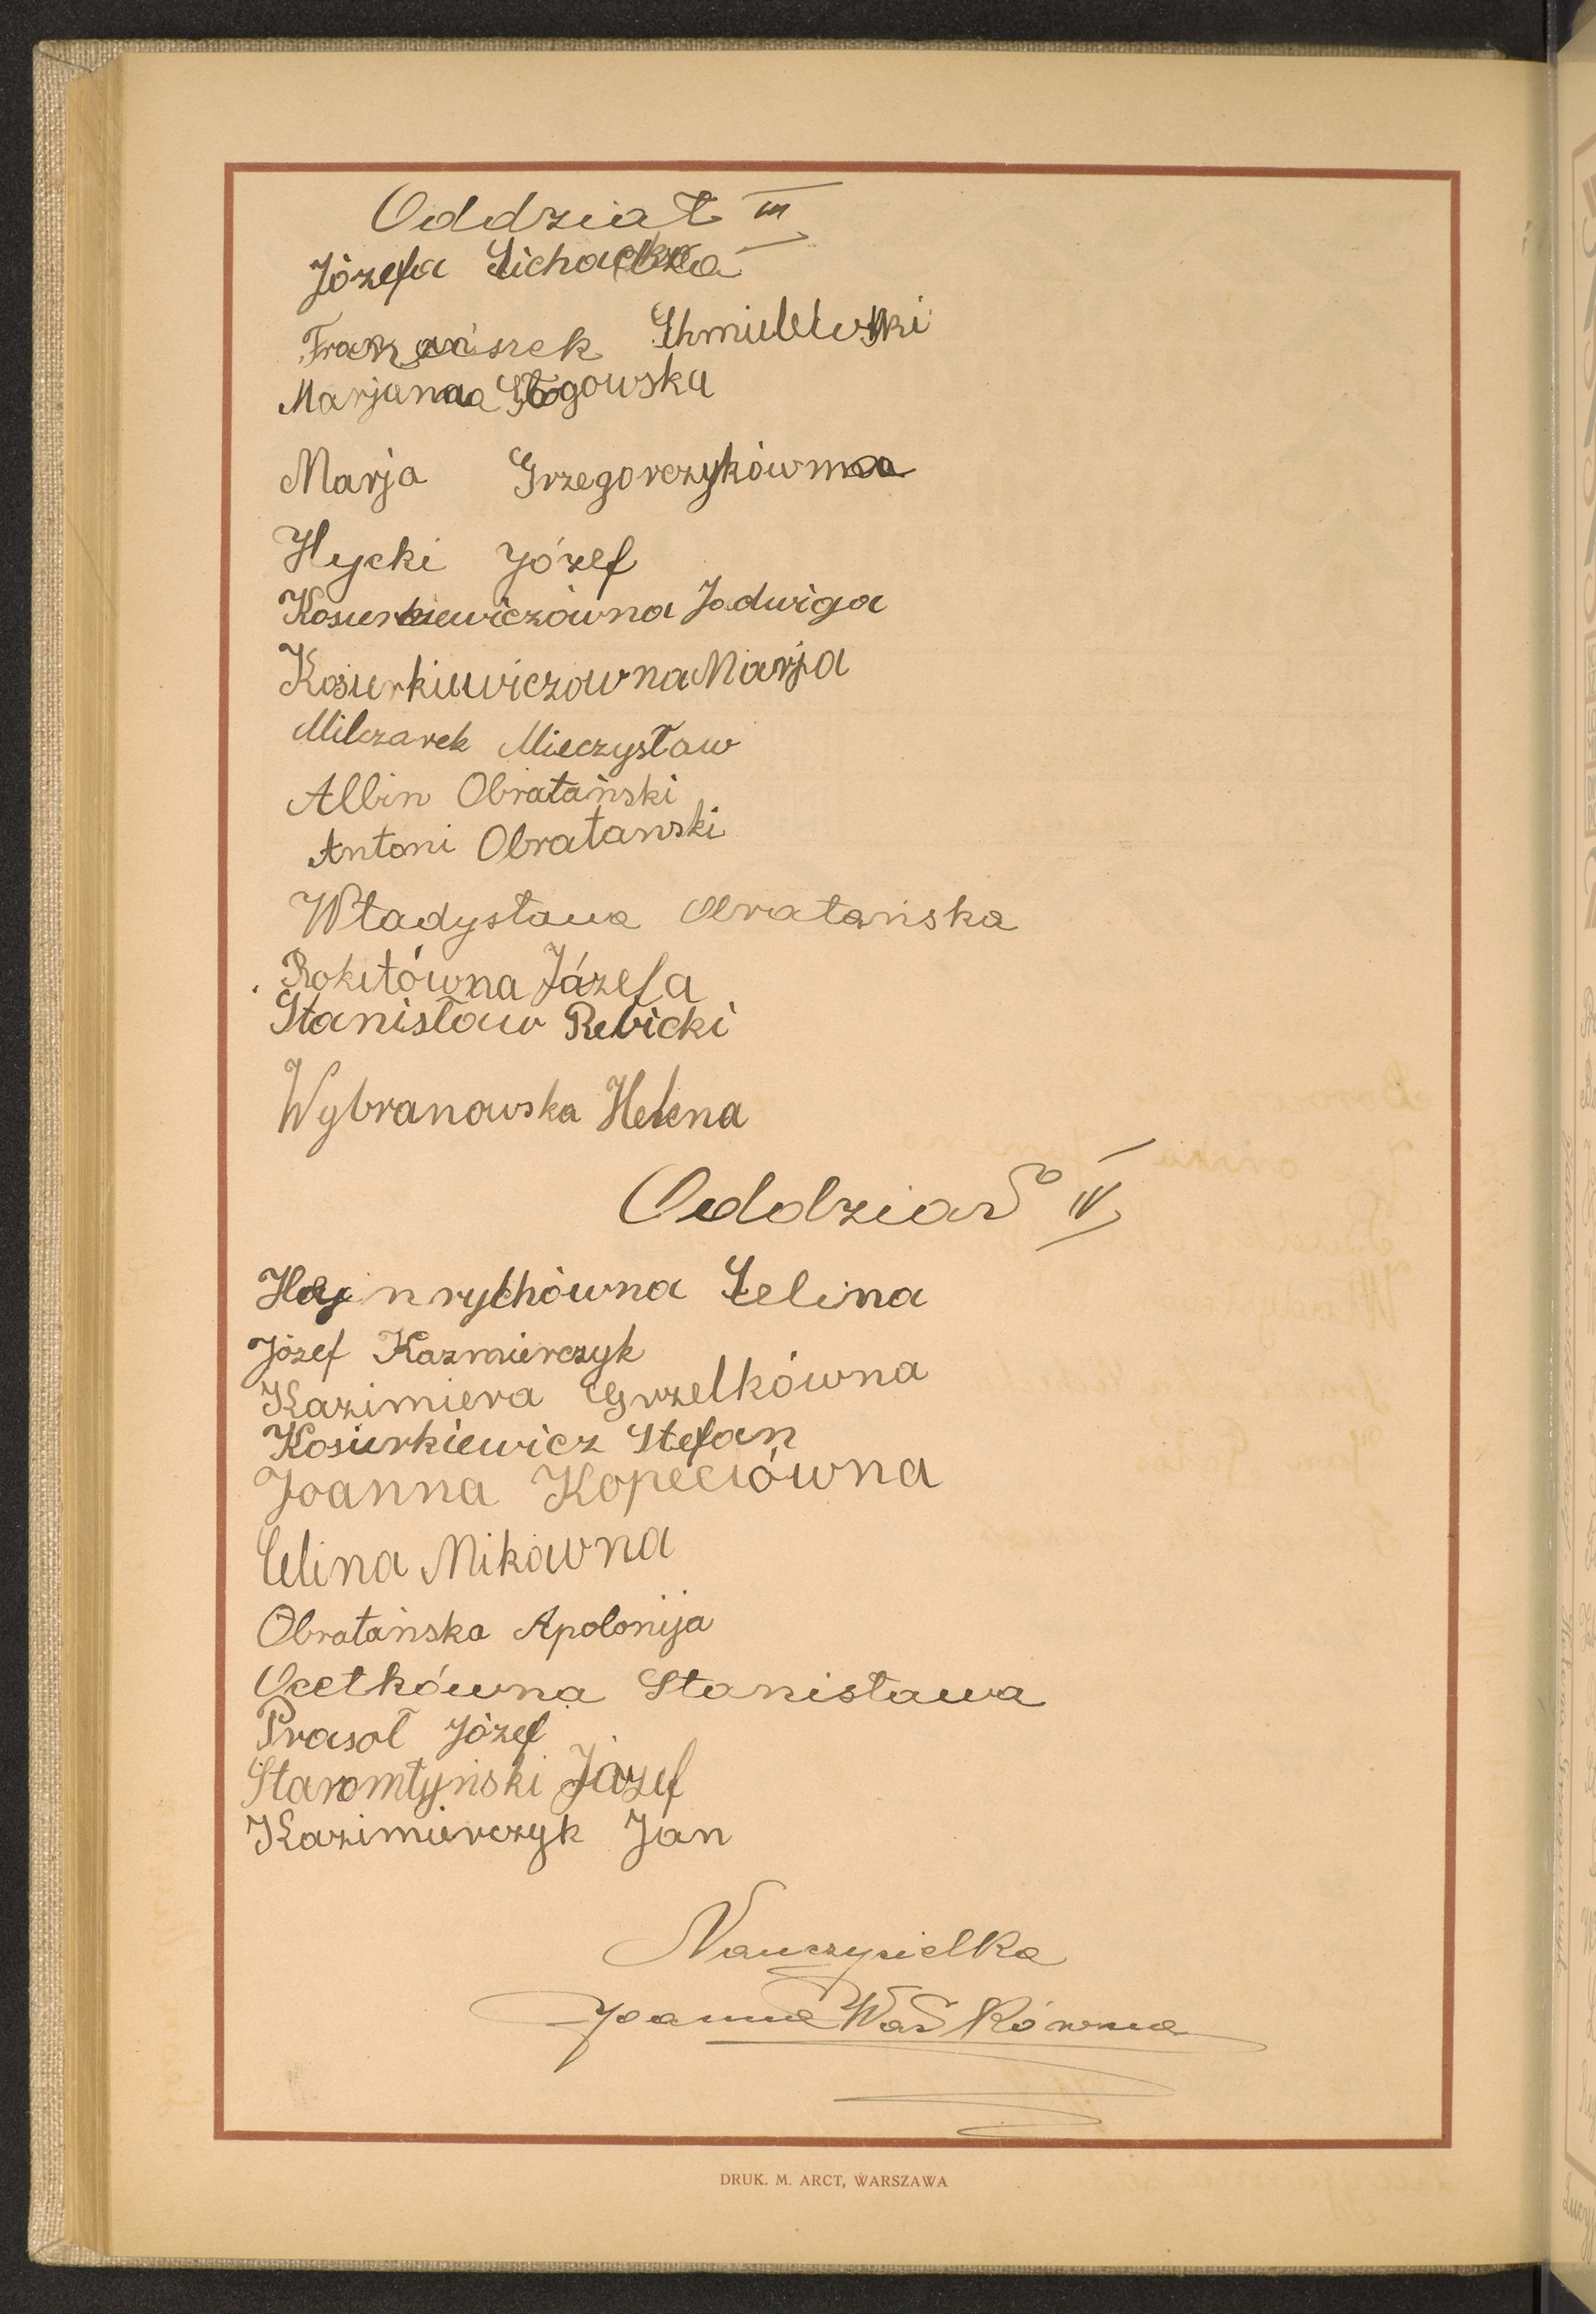 Oddział III
Józefa Cichacka
Franciszek Chmielewski
Marjanna Głogowska
Marja Grzegorczykówna
Hycki Józef
Kosiurkiewiczówna Jadwiga
Kosiurkiewiczowna Marja
Milczarek Mieczysław
Albin Obratański
Antoni Obratański
Władysława Obratańska
Rokitówna Józefa
Stanisław Rebicki
Wybranowska Helena
Oddział IV
Hajnrychówna Celina
Józef Kazmierczyk
Kazimiera Grzelkówna
Kosiurkiewicz Stefan
Joanna Kopeciówna
Celina Mikówna
Obratańska Apolonija
Ocetkówna Stanisława
Prasoł Józef
Staromłyński Józef
Kazimierczyk Jan
Nauczycielka
Joanna Wałkówna
DRUK. M. ARCT, WARSZAWA